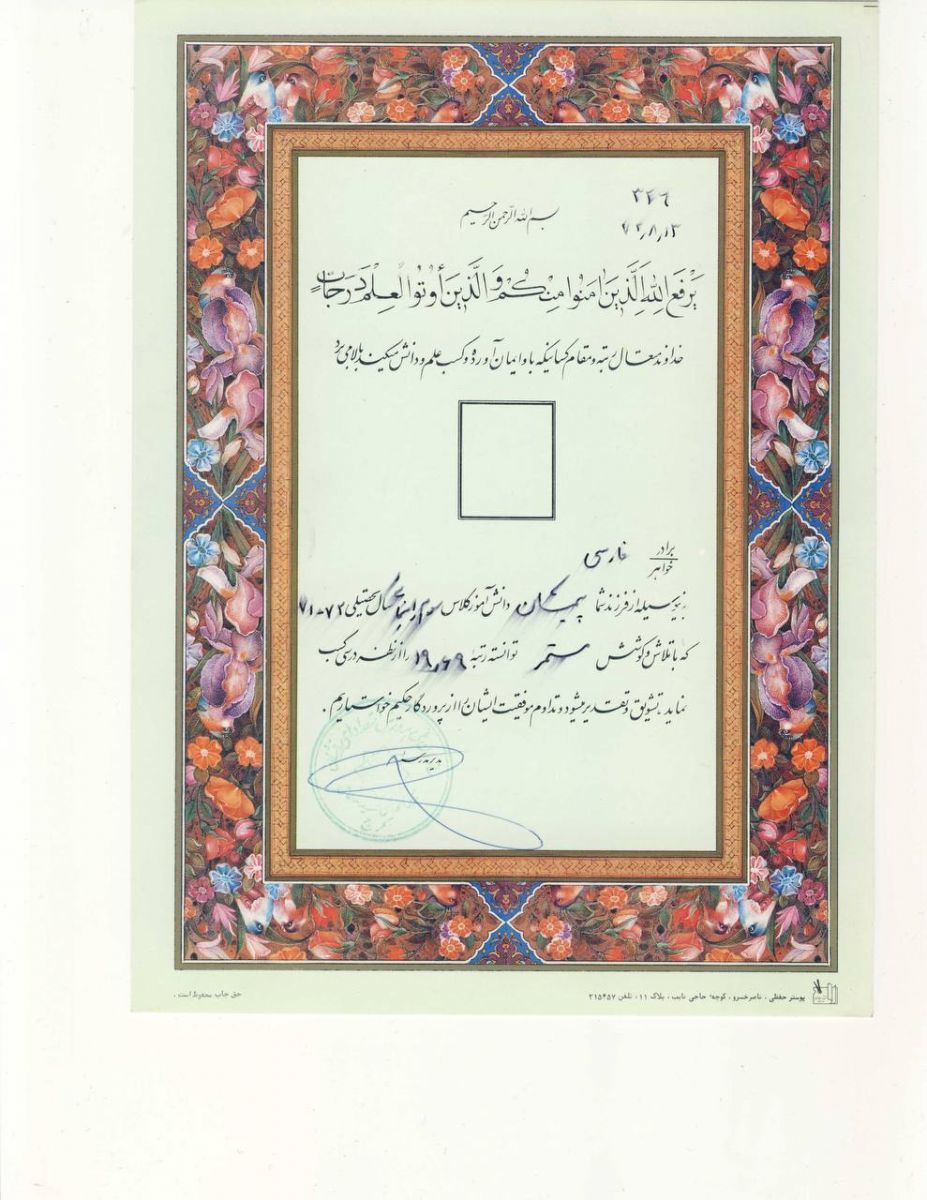 ۳۲۶
۷۲٫۸٫۱۳
بسم الله الرحمن الرحیم
یَرْفَعِ اللهِ الَّذینَ اٰمَنوا مِنکُمْ وَالَّذینَ أُوتُوا الْعِلْمَ دَرَجات
خداوند متعال رتبه و مقام کسانیکه باو ایمان آورده و کسب علم و دانش میکنند بالا می برد
برادر
خواهر
فارسی
بدینوسیله از فرزند شما پیمان دانش آموز کلاس سوم راهنمائی سال تحصیلی ۷۲-۷۱
که با تلاش و کوشش مستمر توانسته رتبه ۱۹٫۶۹ را از نظر درسی کسب
نماید، تشویق و تقدیر میشود و تداوم موفقیت ایشان را از پروردگار حکیم خواستاریم.
مدیر مدرسه
کرج
پوستر حفظی . ناصرخسرو . کوچه حاجی نایب . پلاک ۱۱ . تلفن ۳۱۵۴۵۷
حق چاپ محفوظ است .